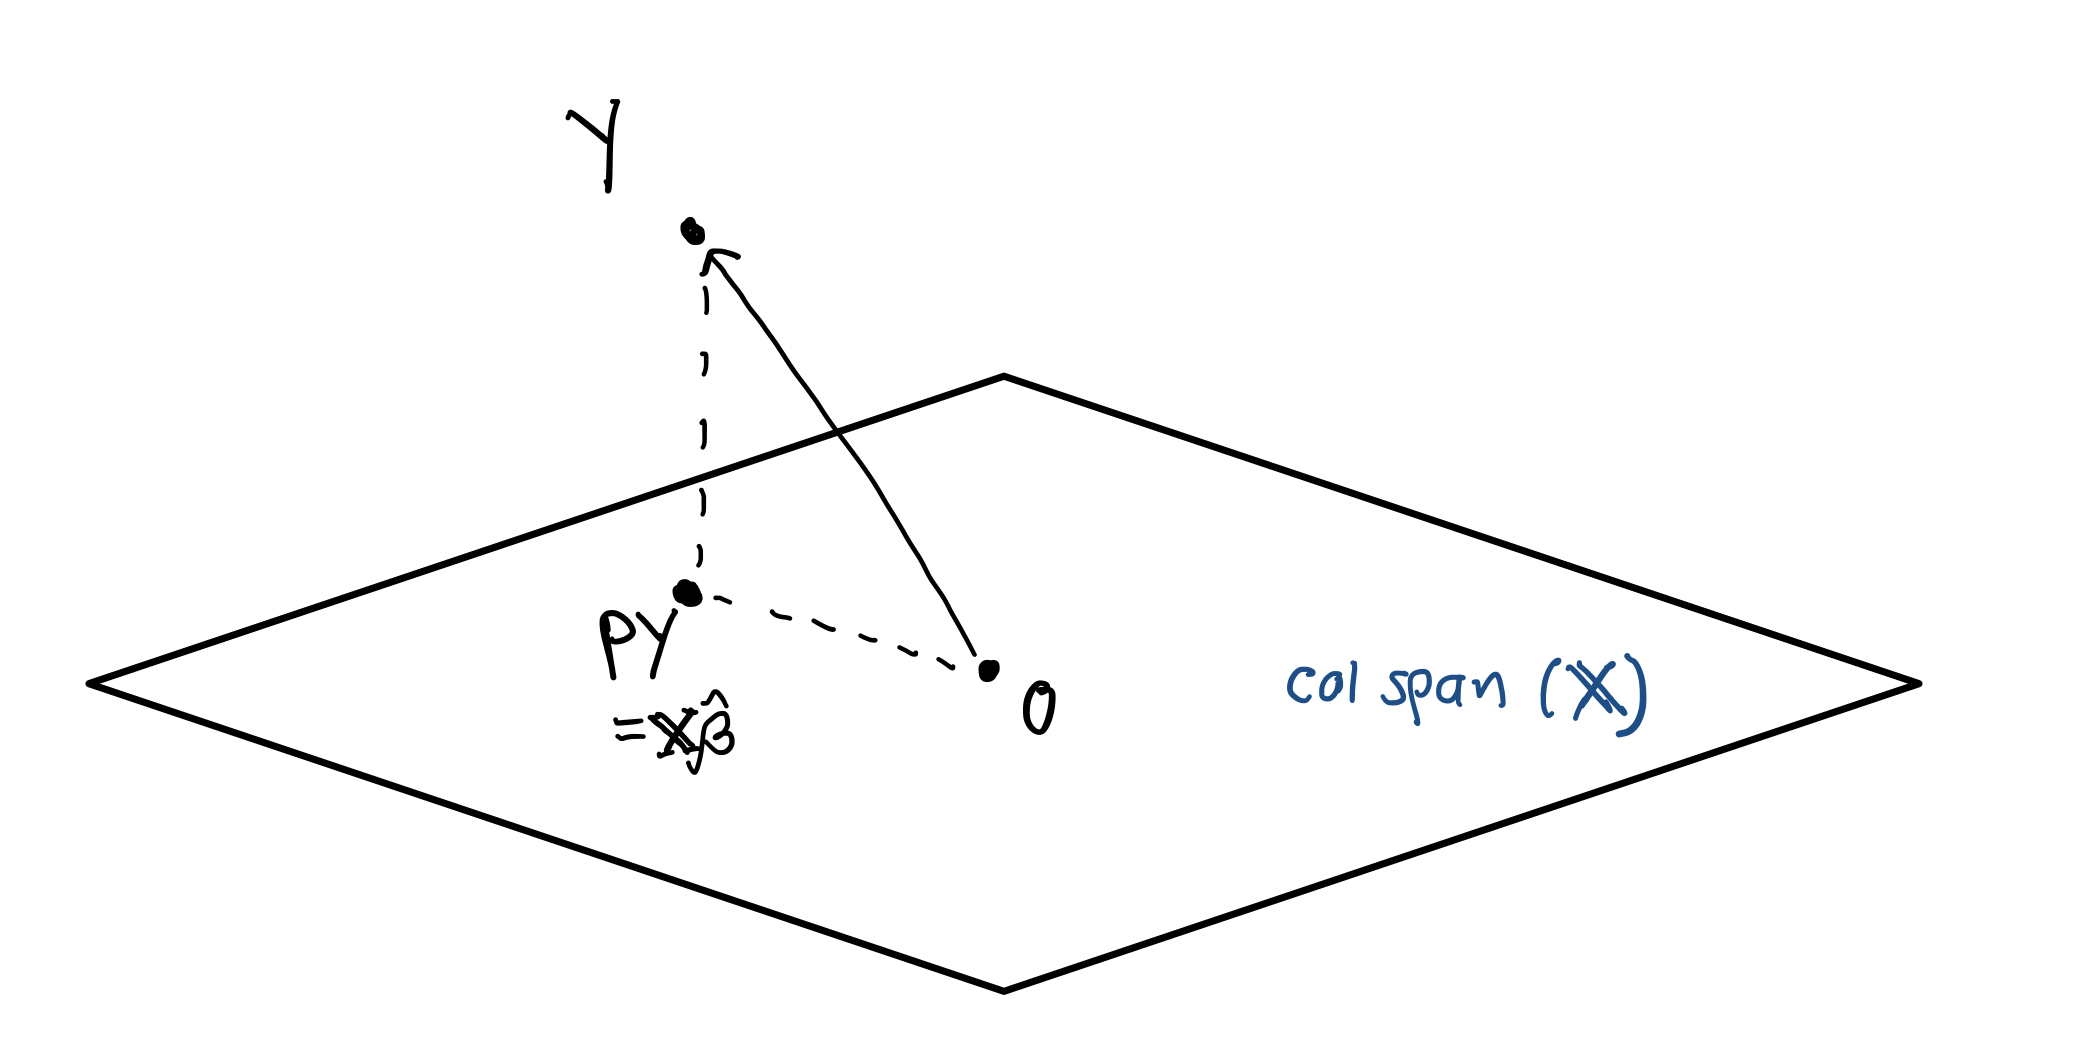 Y
PY
= 𝕏β̂
0
col span (𝕏)